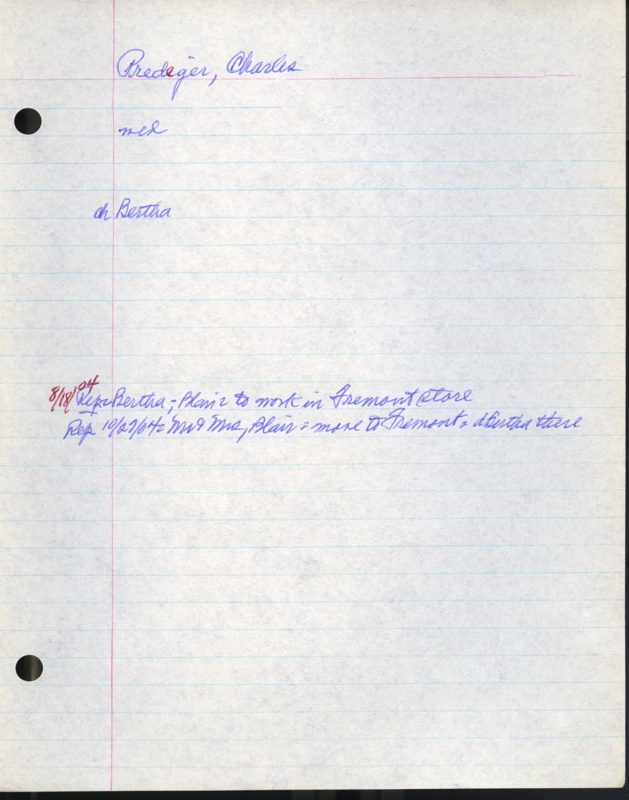 Prediger, Charles
med
ch Bertha
8/18/04 Rep: Bertha, Blair = to work in Fremont store
Rep 10/27/04 = Mr & Mrs, Blair = move to Fremont = d Bertha there